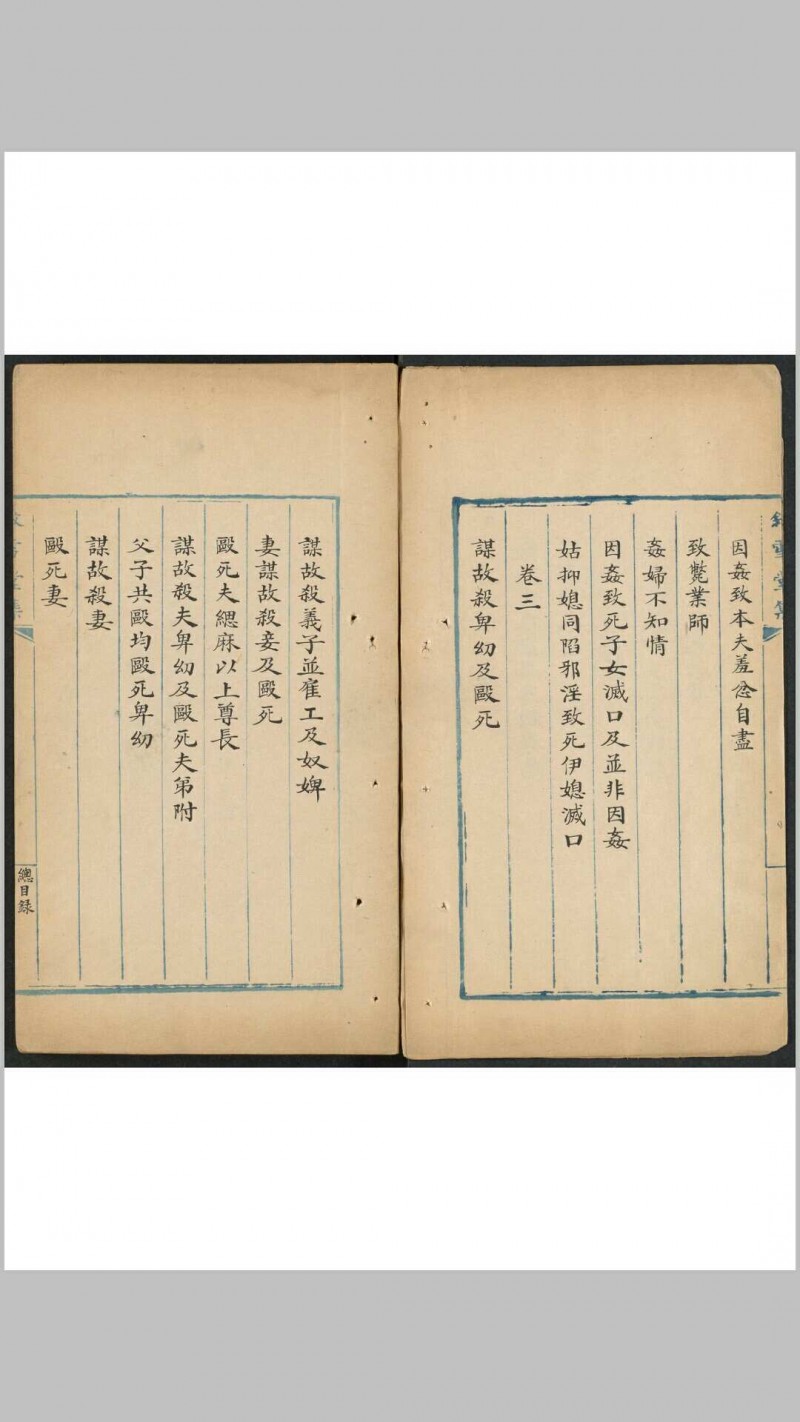 因姦致本夫羞忿自盡
致斃業師
姦婦不知情
因姦致死子女滅口及並非因姦
姑抑媳同陷邪淫致死伊媳滅口
卷三
謀故殺卑幼及毆死
謀故殺義子並雇工及奴婢
妻謀故殺妾及毆死
毆死夫緦麻以上尊長
謀故殺夫卑幼及毆死夫弟附
父子共毆均毆死卑幼
謀故殺妻
毆死妻
總目錄